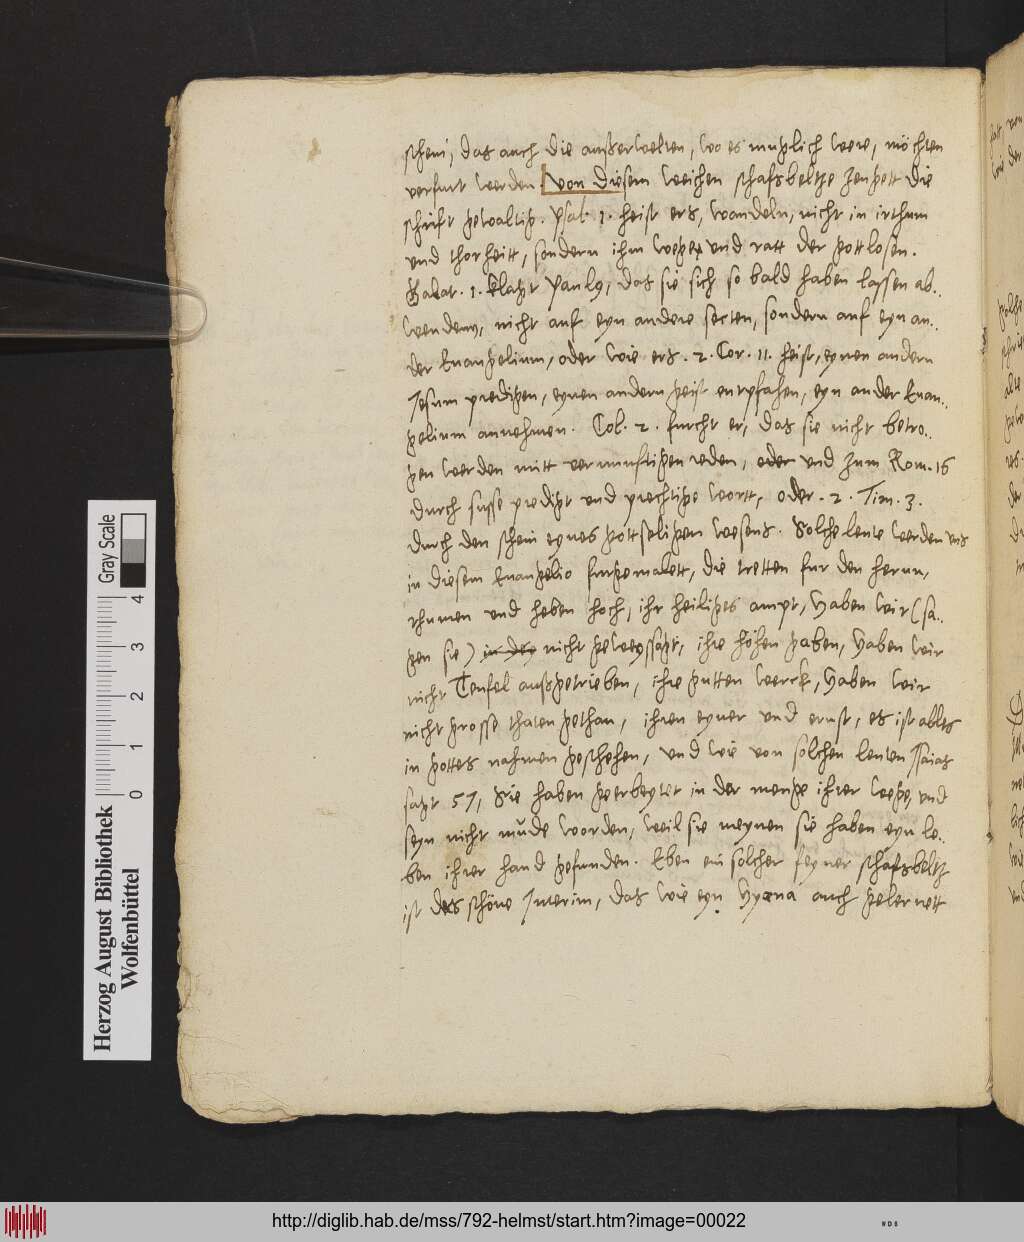 schein, das auch die außerwelten, wo es muglich were, möchten
verfurt werden. von diesem weichen schafsbeltze zeuget die
schrift gewaltig. Psal. 1. heist ers, wandeln, nicht in irthum
und thorheitt, sondern ihm wege und ratt der gottlosen.
Galat. 1. klagt Paulus, das sie sich so bald haben lassen ab..
wenden, nicht auf eyn andere secten, sondern auf eyn an..
der Euangelium, oder wie ers. 2. Cor. 11. heist, eynen andern
Jesum predigen, eynen andern geist entpfahen, eyn ander Euan..
gelium annehmen. Col. 2. furcht er, das sie nicht betro..
gen werden mitt vernunftigen reden, oder und zum Rom. 16
durch susse predigt und prechtige wortt, oder. 2. Tim. 3.
durch den schein eynes gottseligen wesens. Solche leute werden uns
in diesem Euangelio furgemalett, die tretten fur den herrn,
rhumen und heben hoch, ihr heiliges ampt, Haben wir (sa..
gen sie) in dey nicht geweyssagt, ihre hohen gaben, Haben wir
nicht Teufel außgetrieben, ihre gutten werck, Haben wir
nicht grosse thaten gethan, ihren eyver und ernst, es ist alles
in gottes nahmen geschehen, und wie von solchen leuten Isaias
sagt 57, Sie haben gearbeytet in der menge ihrer wege, und
seyn nicht müde worden, weil sie meynen sie haben eyn le..
ben ihrer hand gefunden. Eben ein solcher feyner schafsbeltz
ist das schöne Interim, das wie eyn Hyæna auch gelernett
Herzog August Bibliothek
Wolfenbüttel
Gray Scale
0 1 2 3 4
http://diglib.hab.de/mss/792-helmst/start.htm?image=00022